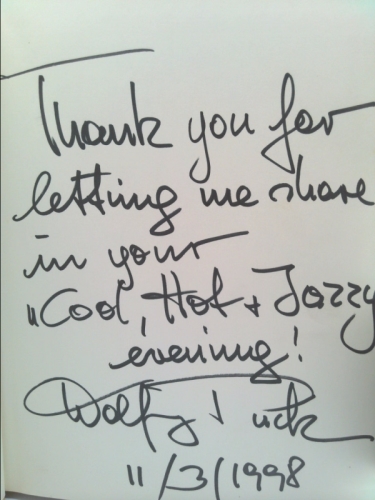 Thank you for
letting me share
in your
"Cool, Hot + Jazzy
evening!
Wolfgang
11/3/1998